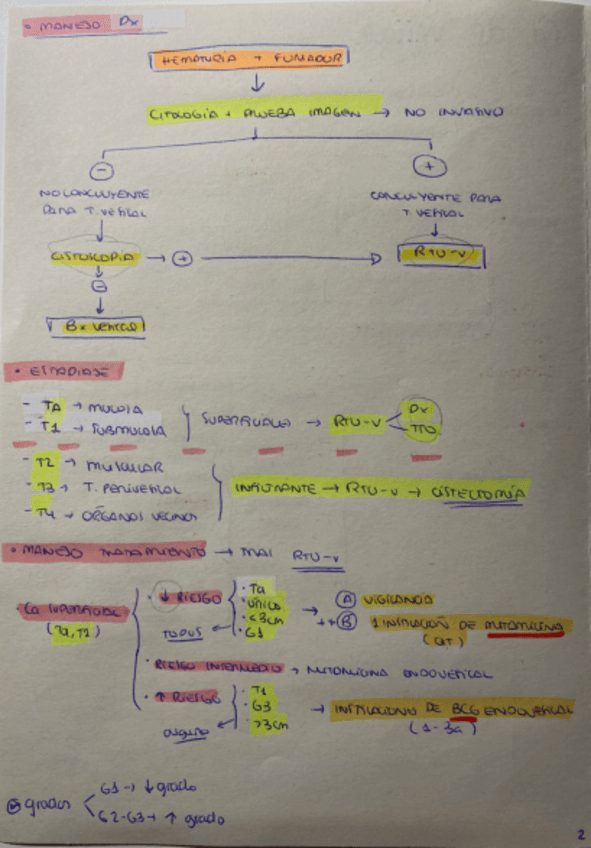 • MANEJO Dx
HEMATURIA + FUMADOR
CITOLOGÍA + PRUEBA IMAGEN → NO INVASIVO
⊖ ⊕
NO CONCLUYENTE
PARA T. VESICAL
CONCLUYENTE PARA
T. VESICAL
CISTOSCOPIA → ⊕ → RTU-V
⊖
Bx VESICAL
• ESTADIAJE
- TA → MUCOSA
- T1 → SUBMUCOSA
SUPERFICIALES → RTU-V
Dx
TTO
- T2 → MUSCULAR
- T3 → T. PERIVESICAL
- T4 → ÓRGANOS VECINOS
INFILTRANTE → RTU-V → CISTECTOMÍA
• MANEJO TRATAMIENTO → RTU-V
• Ca SUPERFICIAL
(Ta, T1)
• ↓ RIESGO
TODOS
• Ta
• ÚNICO
• <3cm
• G1
→ Ⓐ VIGILANCIA
++ Ⓑ 1 INSTILACIÓN DE MITOMICINA
(QT)
• RIESGO INTERMEDIO → MITOMICINA ENDOVESICAL
• ↑ RIESGO
• T1
• G3
• >3cm
→ INSTILACIONES DE BCG ENDOVESICAL
(1-3a)
grados
G1 → ↓ grado
G2-G3 → ↑ grado
2